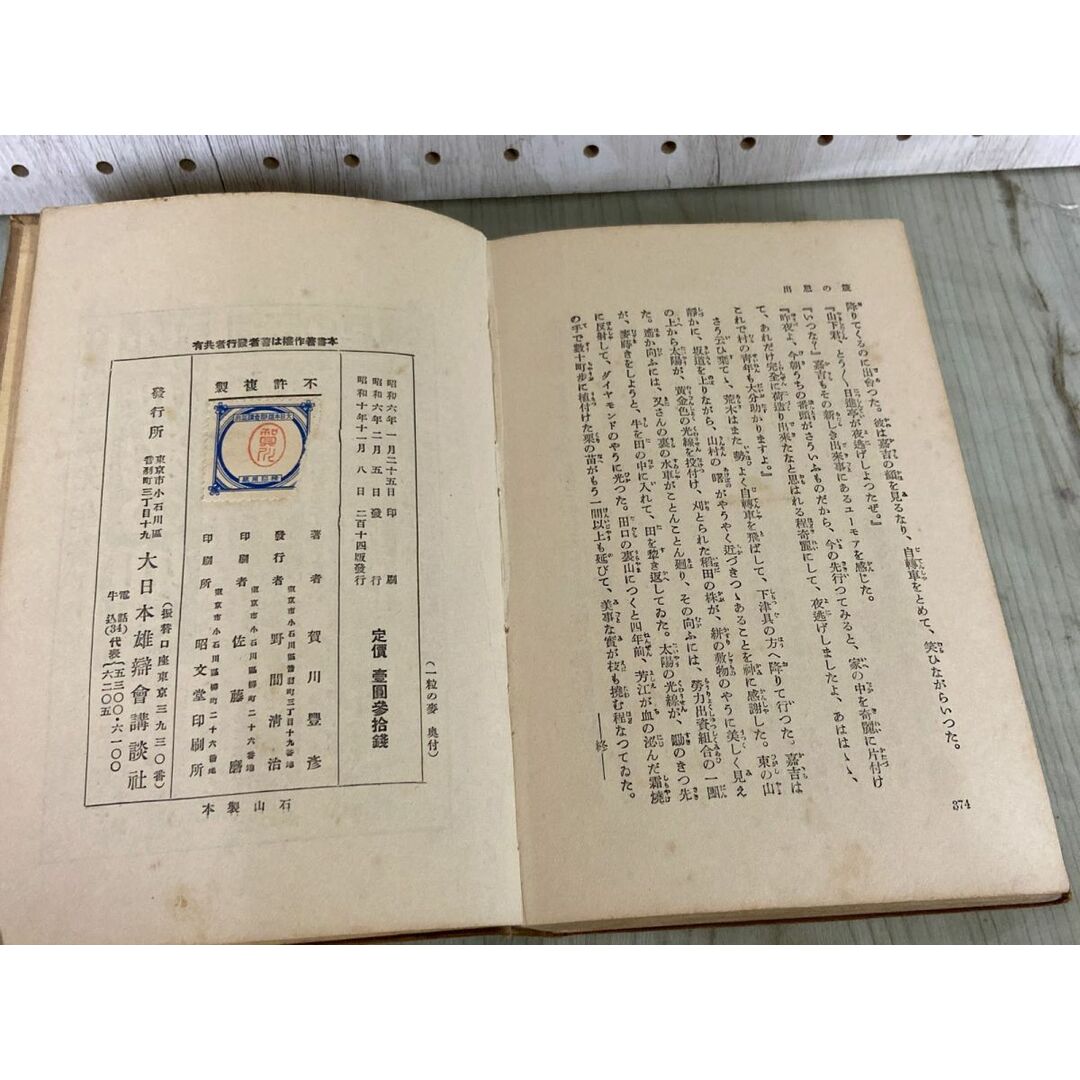 374
降りてくるのに出會つた。彼は嘉吉の顏を見るなり、自轉車をとめて、笑ひながらいつた。
『山下君、とう〳〵日進亭が夜逃げしよつたぜ。』
『いつな？』嘉吉もその新しき出來事にあるユーモアを感じた。
『昨夜よ、今朝うちの番頭がさういふものだから、今の先行つてみると、家の中を奇麗に片付け
て、あれだけ完全に荷造り出來たなと思はれる程奇麗にして、夜逃げしましたよ、あはゝゝ、
これで村の青年も大分助かりますよ。』
さう云ひ棄てゝ、荒木はまた勢よく自轉車を飛ばして、下津具の方へ降りて行つた。嘉吉は
靜かに、坂道を上りながら、山村の曙がやうやく近づきつゝあることを神に感謝した。東の山
の上から太陽が、黄金色の光線を投付け、刈とられた稻田の株が、絣の敷物のやうに美しく見え
た。遙か向ふには、又さんの裏の水車がことんことん廻り、その向ふには、勞力出資組合の一團
が、麥蒔きをしようと、牛を田の中に入れて、田を犂き返してゐた。太陽の光線が、鋤のきつ先
に反射して、ダイヤモンドのやうに光つた。田口の裏山につくと四年前、芳江が血の泌んだ霜燒
の手で數十町歩に植付けた栗の苗がもう一間以上も延びて、美事な實が枝も撓む程なつてゐた。
――終――
(一粒の麥 奥付)
定價 壹圓參拾錢
昭和六年一月二十五日印刷
昭和六年二月五日發行
昭和十年十一月八日二百十四版發行
本書著作權は著者發行者共有
不許複製
著者 賀川豐彦
東京市小石川區音羽町三丁目十九番地
發行者 野間清治
東京市小石川區柳町二十六番地
印刷者 佐藤磨
東京市小石川區柳町二十六番地
印刷所 昭文堂印刷所
發行所
東京市小石川區
音羽町三丁目十九
大日本雄辯會講談社
(振替口座東京三九三〇番)
電話
牛込(34)代表
五三〇〇・六一〇〇
六二〇五
石山製本